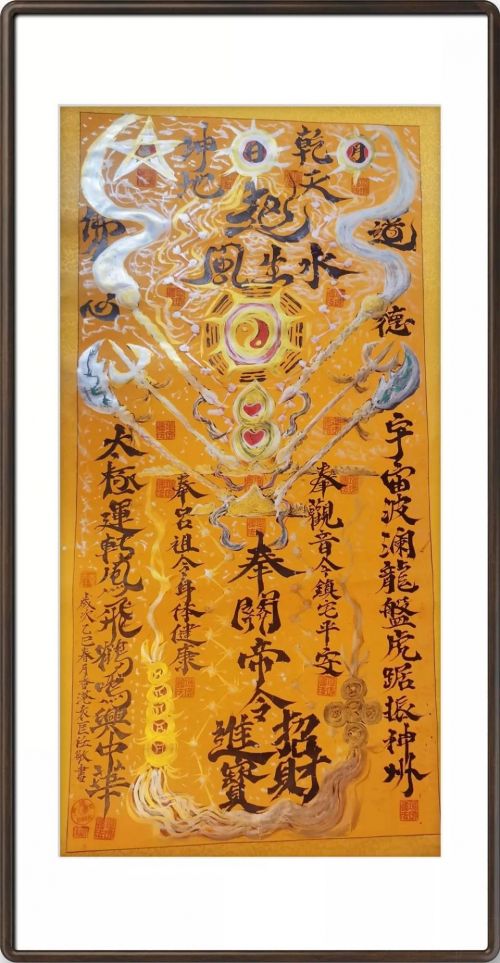 乾天
月
日
坤地
起
風生水
道德
佛心
宇宙波澜龍盤虎踞振神州
奉觀音令鎮宅平安
奉關帝令
招財
進寶
奉呂祖令身体健康
太極運轉鳳飛鶴舞興中華
歲次乙巳春月香港敬書